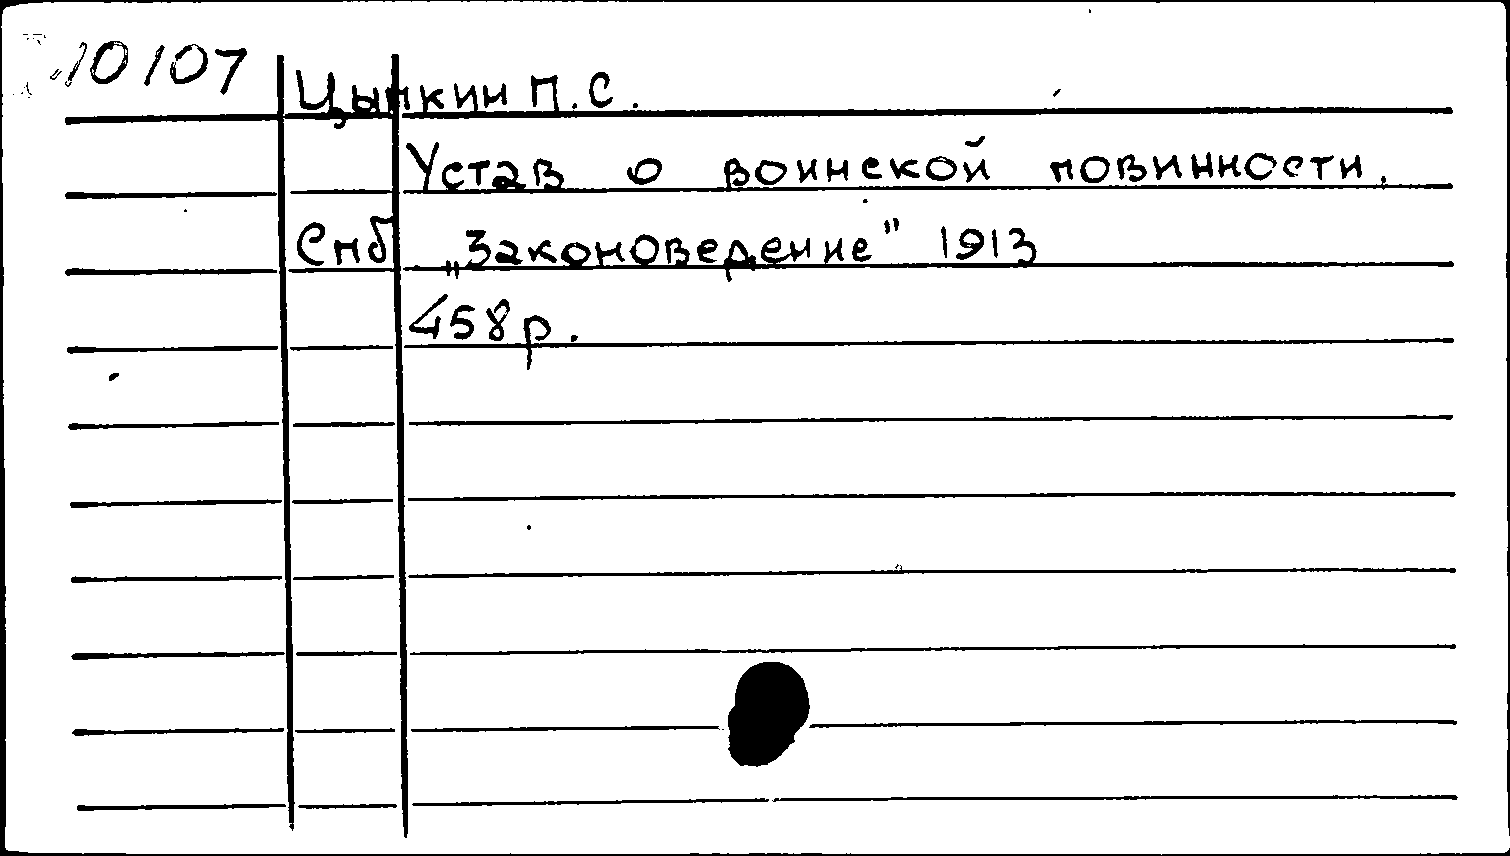 10107
Цыпкин П.С.
Устав о воинской повинности.
Спб „Законоведение" 1913
458р.